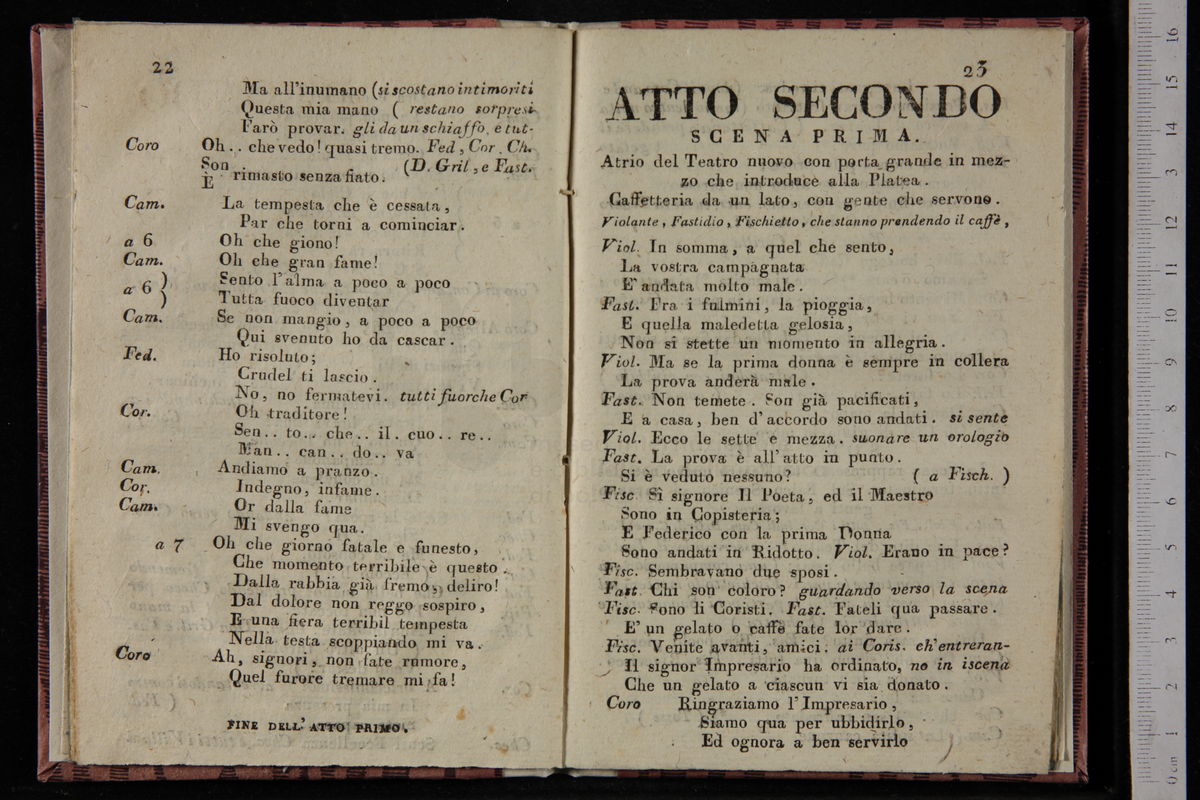 22
Ma all'inumano (si scostano intimoriti
Questa mia mano ( restano sorpresi
Farò provar. gli da un schiaffo, e tut-
Coro Oh . . che vedo! quasi tremo. Fed, Cor. Ch.
Son . . (D. Gril, e Fast.
È rimasto senza fiato.
Cam. La tempesta che è cessata,
Par che torni a cominciar.
a 6 Oh che giono!
Cam. Oh che gran fame!
a 6 ) Sento l'alma a poco a poco
) Tutta fuoco diventar
Cam. Se non mangio, a poco a poco
Qui svenuto ho da cascar.
Fed. Ho risoluto;
Crudel ti lascio.
No, no fermatevi. tutti fuorche Cor
Cor. Oh traditore!
Sen . . to . . che . . il . cuo . . re . .
Man . . can . . do . . va
Cam. Andiamo a pranzo.
Cor. Indegno, infame.
Cam. Or dalla fame
Mi svengo qua.
a 7 Oh che giorno fatale e funesto,
Che momento terribile è questo.
Dalla rabbia già fremo, deliro!
Dal dolore non reggo sospiro,
E una fiera terribil tempesta
Nella testa scoppiando mi va.
Coro Ah, signori, non fate rumore,
Quel furore tremare mi fa!
FINE DELL' ATTO PRIMO.
23
ATTO SECONDO
SCENA PRIMA.
Atrio del Teatro nuovo con porta grande in mez-
zo che introduce alla Platea.
Caffetteria da un lato, con gente che servono.
Violante, Fastidio, Fischietto, che stanno prendendo il caffè,
Viol. In somma, a quel che sento,
La vostra campagnata
E' andata molto male.
Fast. Fra i fulmini, la pioggia,
E quella maledetta gelosia,
Non si stette un momento in allegria.
Viol. Ma se la prima donna è sempre in collera
La prova anderà male.
Fast. Non temete. Son già pacificati,
E a casa, ben d'accordo sono andati. si sente
Viol. Ecco le sette e mezza. suonare un orologio
Fast. La prova è all'atto in punto.
Si è veduto nessuno? ( a Fisch. )
Fisc Sì signore Il Poeta, ed il Maestro
Sono in Copisteria;
E Federico con la prima Donna
Sono andati in Ridotto. Viol. Erano in pace?
Fisc. Sembravano due sposi.
Fast Chi son coloro? guardando verso la scena
Fisc. Sono li Coristi. Fast. Fateli qua passare.
E' un gelato o caffè fate lor dare.
Fisc. Venite avanti, amici. ai Coris. ch'entreran-
Il signor Impresario ha ordinato, no in iscena
Che un gelato a ciascun vi sia donato.
Coro Ringraziamo l'Impresario,
Siamo qua per ubbidirlo,
Ed ognora a ben servirlo
0 cm 1 2 3 4 5 6 7 8 9 10 11 12 13 14 15 16